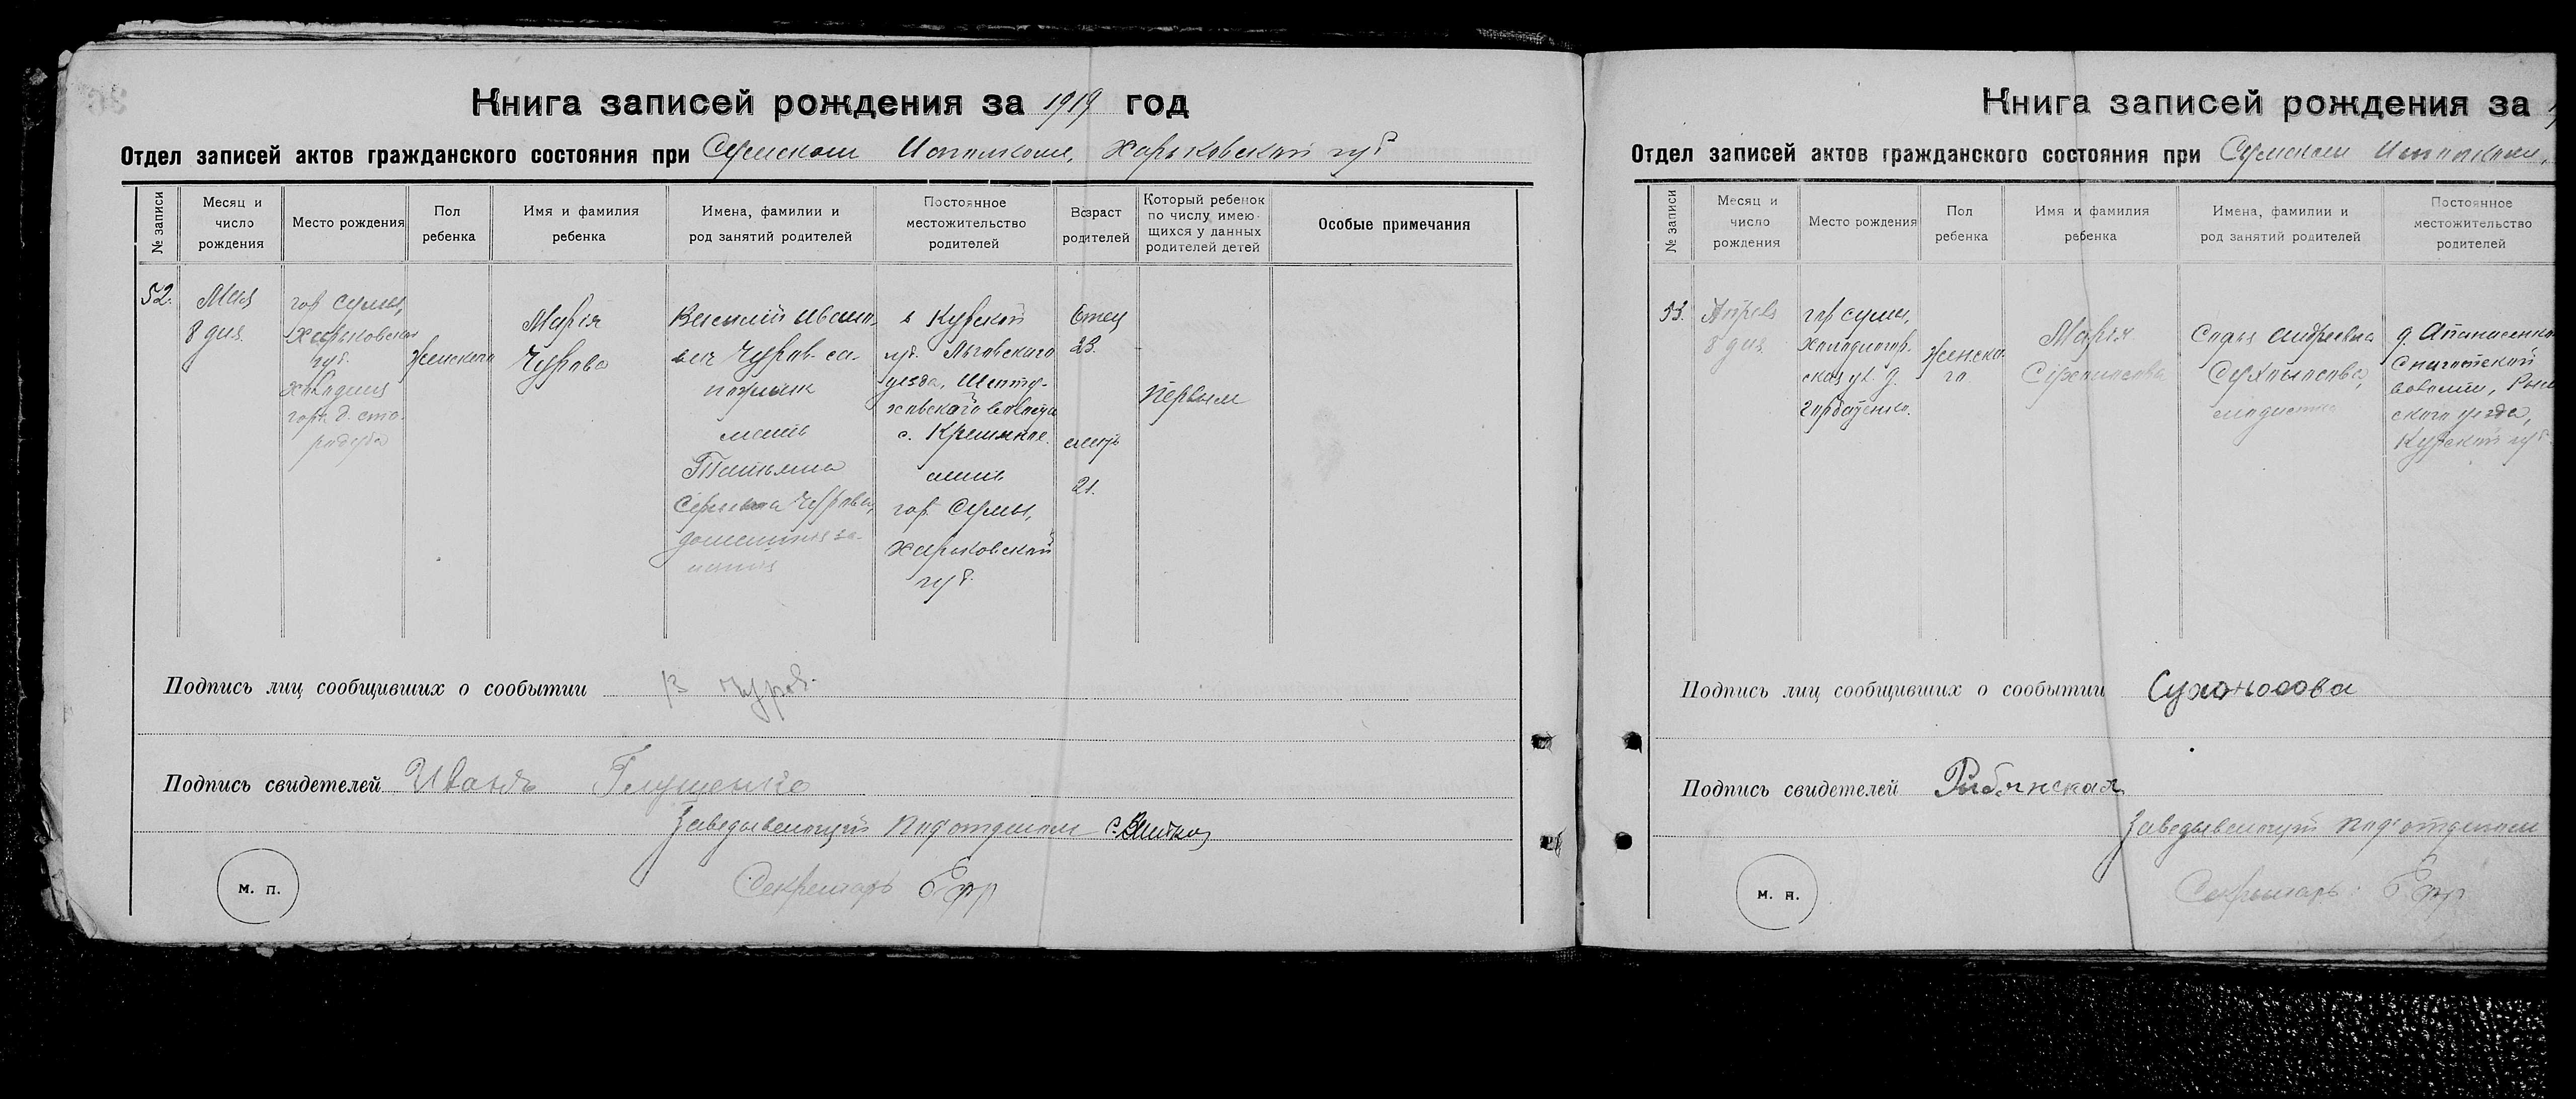 Книга записей рождения за 1919 год
Отдел записей актов гражданского состояния при Сумском Исполкоме, Харьковской губ
№ записи
Месяц и
число
рождения
Место рождения
Пол
ребенка
Имя и фамилия
ребенка
Имена, фамилии и
род занятий родителей
Постоянное
местожительство
родителей
Возраст
родителей
Который ребенок
по числу имею-
щихся у данных
родителей детей
Особые примечания
52.
Мая
8 дня.
гор Сумы,
Харьковская
губ.
Холодная
гора д. Ста-
родуба
женского
Марія
Чурова
Василий Ивано-
вич Чуров. са-
пожник
мать
Татьяна
Сергеевна Чурова,
домашния за-
нятия
в Курской
губ. Льговского
уезда,
с.
мать
гор. Сумы,
Харьковской
губ.
Отец
23.
мать
21.
Первым
Подпись лиц сообщивших о сообытии В Чуров.
Подпись свидетелей Иванъ Глущенко
Заведывающий Под'отделом
Секретарь
м. п.
Книга записей рождения за
Отдел записей актов гражданского состояния при Сумском Исполкоме,
№ записи
Месяц и
число
рождения
Место рождения
Пол
ребенка
Имя и фамилия
ребенка
Имена, фамилии и
род занятий родителей
Постоянное
местожительство
родителей
53.
Апрель
8 дня.
гор Сумы,
Холодногор-
ская ул. д.
Горбатенко.
женско-
го
Марія
Сухоносова
Софья Андреевна
Сухоносова,
модистка
д. Апанасенко
волости, Рыль
ского уезда,
Курской губ.
Подпись лиц сообщивших о сообытии Сухоносова
Подпись свидетелей
Заведывающий под'отделом
Секретарь:
м. п.